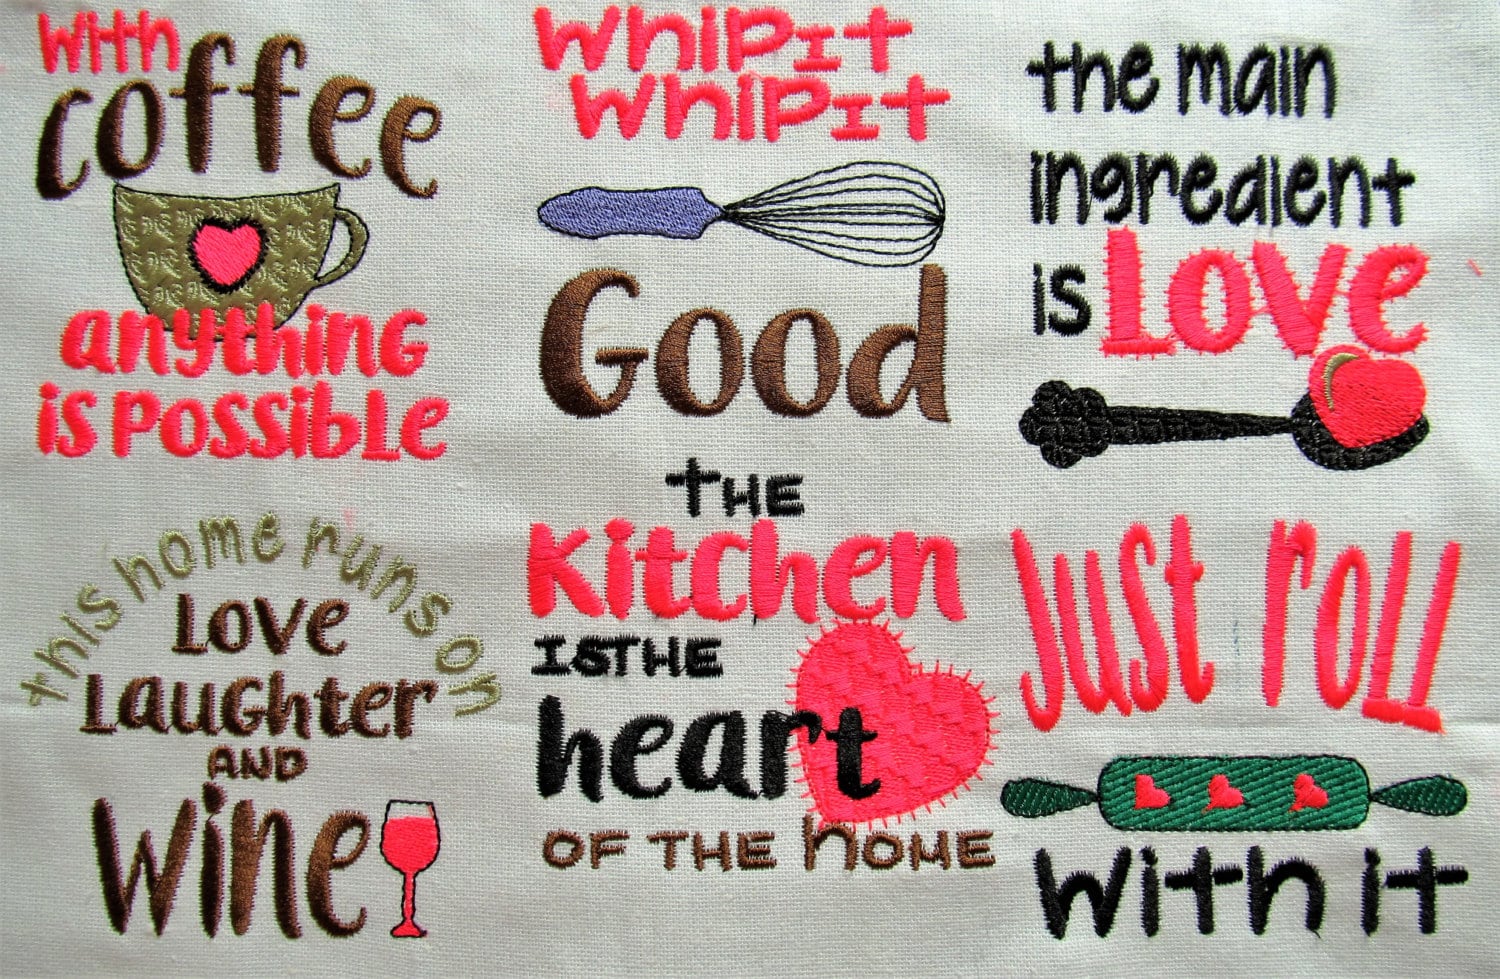 with
coffee
anything
is possible
whip it
whip it
Good
the main
ingredient
is Love
this home runs on
Love
Laughter
AND
Wine
THE
Kitchen
IS THE
heart
OF THE HOME
Just roll
with it